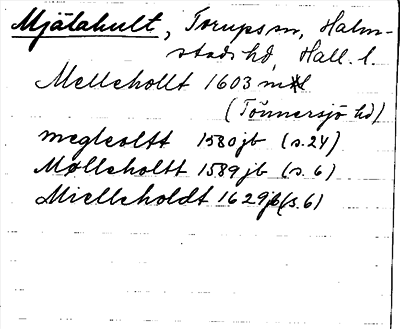 Mjälahult, Torups sn, Halm-
stads hd, Hall. l.
Mellehollt 1603
(Tönnersjö hd)
megleoltt 1580 jb (s. 24)
Mølleholtt 1589 jb (s. 6)
Mielleholdt 1629 jb (s. 6)